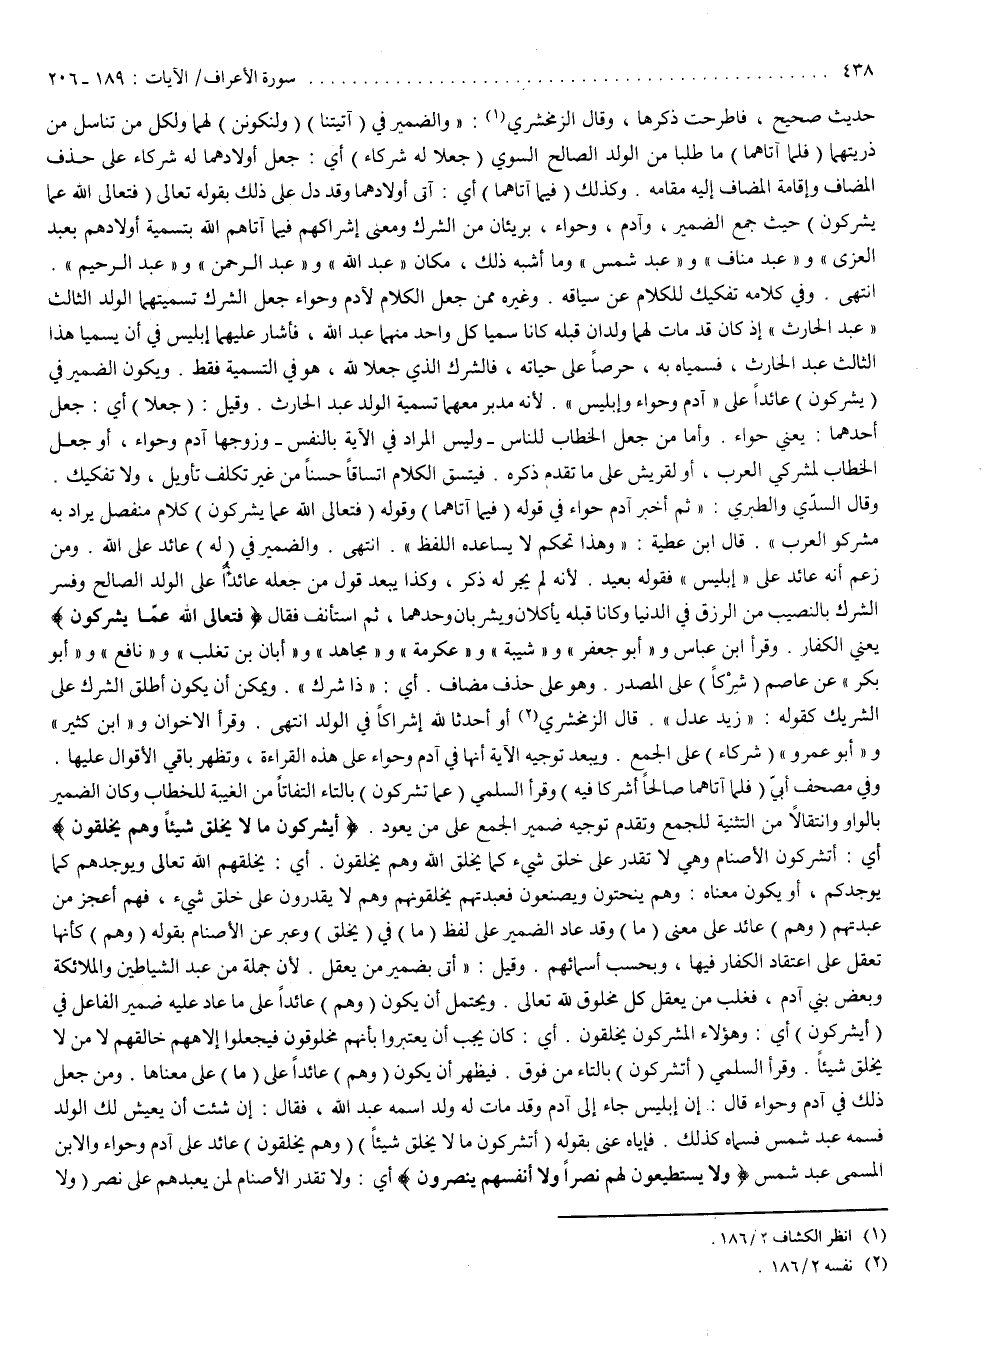 ٤٣٨ ............................................ سورة الأعراف/ الآيات : ١٨٩ ـ ٢٠٦
حديث صحيح ، فاطرحت ذكرها ، وقال الزمخشري(١) : « والضمير في ( آتيتنا ) ( ولنكونن ) لهما ولكل من تناسل من
ذريتهما ( فلما آتاهما ) ما طلبا من الولد الصالح السوي ( جعلا له شركاء ) أي : جعل أولادهما له شركاء على حذف
المضاف وإقامة المضاف إليه مقامه . وكذلك ( فيما آتاهما ) أي : آتى أولادهما وقد دل على ذلك بقوله تعالى ( فتعالى الله عما
يشركون ) حيث جمع الضمير ، وآدم ، وحواء ، بريئان من الشرك ومعنى إشراكهم فيما آتاهم الله بتسمية أولادهم بعبد
العزى » و« عبد مناف » و« عبد شمس » وما أشبه ذلك ، مكان « عبد الله » و« عبد الرحمن » و« عبد الرحيم » .
انتهى . وفي كلامه تفكيك للكلام عن سياقه . وغيره ممن جعل الكلام لآدم وحواء جعل الشرك تسميتهما الولد الثالث
« عبد الحارث » إذ كان قد مات لهما ولدان قبله كانا سميا كل واحد منهما عبد الله ، فأشار عليهما إبليس في أن يسميا هذا
الثالث عبد الحارث ، فسمياه به ، حرصاً على حياته ، فالشرك الذي جعلا لله ، هو في التسمية فقط . ويكون الضمير في
( يشركون ) عائداً على « آدم وحواء وإبليس » . لأنه مدبر معهما تسمية الولد عبد الحارث . وقيل : ( جعلا ) أي : جعل
أحدهما : يعني حواء . وأما من جعل الخطاب للناس ـ وليس المراد في الآية بالنفس ـ وزوجها آدم وحواء ، أو جعل
الخطاب لمشركي العرب ، أو لقريش على ما تقدم ذكره . فيتسق الكلام اتساقاً حسناً من غير تكلف تأويل ، ولا تفكيك .
وقال السدّي والطبري : « ثم أخبر آدم حواء في قوله ( فيما آتاهما ) وقوله ( فتعالى الله عما يشركون ) كلام منفصل يراد به
مشركو العرب » . قال ابن عطية : « وهذا تحكم لا يساعده اللفظ » . انتهى . والضمير في ( له ) عائد على الله . ومن
زعم أنه عائد على « إبليس » فقوله بعيد . لأنه لم يجر له ذكر ، وكذا يبعد قول من جعله عائداً على الولد الصالح وفسر
الشرك بالنصيب من الرزق في الدنيا وكانا قبله يأكلان ويشربان وحدهما ، ثم استأنف فقال ﴿ فتعالى الله عمّا يشركون ﴾
يعني الكفار . وقرأ ابن عباس و« أبو جعفر » و« شيبة » و« عكرمة » و« مجاهد » و« أبان بن تغلب » و« نافع » و« أبو
بكر » عن عاصم ( شِرْكاً ) على المصدر . وهو على حذف مضاف . أي : « ذا شرك » . ويمكن أن يكون أطلق الشرك على
الشريك كقوله : « زيد عدل » . قال الزمخشري(٢) أو أحدثا لله إشراكاً في الولد انتهى . وقرأ الاخوان و« ابن كثير »
و « أبو عمرو » ( شركاء ) على الجمع . ويبعد توجيه الآية أنها في آدم وحواء على هذه القراءة ، وتظهر باقي الأقوال عليها .
وفي مصحف أبيّ ( فلما آتاهما صالحاً أشركا فيه ) وقرأ السلمي ( عما تشركون ) بالتاء التفاتاً من الغيبة للخطاب وكان الضمير
بالواو وانتقالاً من التثنية للجمع وتقدم توجيه ضمير الجمع على من يعود . ﴿ أيشركون ما لا يخلق شيئاً وهم يخلقون ﴾
أي : أتشركون الأصنام وهي لا تقدر على خلق شيء كما يخلق الله وهم يخلقون . أي : يخلقهم الله تعالى ويوجدهم كما
يوجدكم ، أو يكون معناه : وهم ينحتون ويصنعون فعبدتهم يخلقونهم وهم لا يقدرون على خلق شيء ، فهم أعجز من
عبدتهم ( وهم ) عائد على معنى ( ما ) وقد عاد الضمير على لفظ ( ما ) في ( يخلق ) وعبر عن الأصنام بقوله ( وهم ) كأنها
تعقل على اعتقاد الكفار فيها ، وبحسب أسمائهم . وقيل : « أتى بضمير من يعقل . لأن جملة من عبد الشياطين والملائكة
وبعض بني آدم ، فغلب من يعقل كل مخلوق لله تعالى . ويحتمل أن يكون ( وهم ) عائداً على ما عاد عليه ضمير الفاعل في
( أيشركون ) أي : وهؤلاء المشركون يخلقون . أي : كان يجب أن يعتبروا بأنهم مخلوقون فيجعلوا إلاههم خالقهم لا من لا
يخلق شيئاً . وقرأ السلمي ( أتشركون ) بالتاء من فوق . فيظهر أن يكون ( وهم ) عائداً على ( ما ) على معناها . ومن جعل
ذلك في آدم وحواء قال : إن إبليس جاء إلى آدم وقد مات له ولد اسمه عبد الله ، فقال : إن شئت أن يعيش لك الولد
فسمه عبد شمس فسماه كذلك . فإياه عنى بقوله ( أتشركون ما لا يخلق شيئاً ) ( وهم يخلقون ) عائد على آدم وحواء والابن
المسمى عبد شمس ﴿ ولا يستطيعون لهم نصراً ولا أنفسهم ينصرون ﴾ أي : ولا تقدر الأصنام لمن يعبدهم على نصر ( ولا
(١) انظر الكشاف ١٨٦/٢ .
(٢) نفسه ١٨٦/٢ .